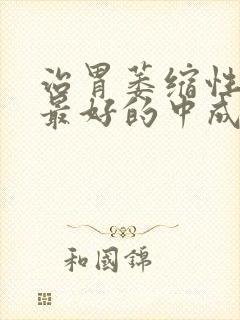 治胃萎缩性
最好的中成
和國錦